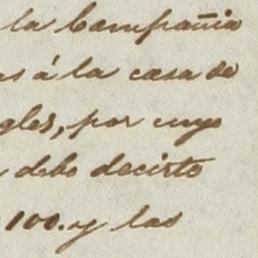 la Compañia
as á la casa de
gles, por cuyo
debo decirte
100. y las